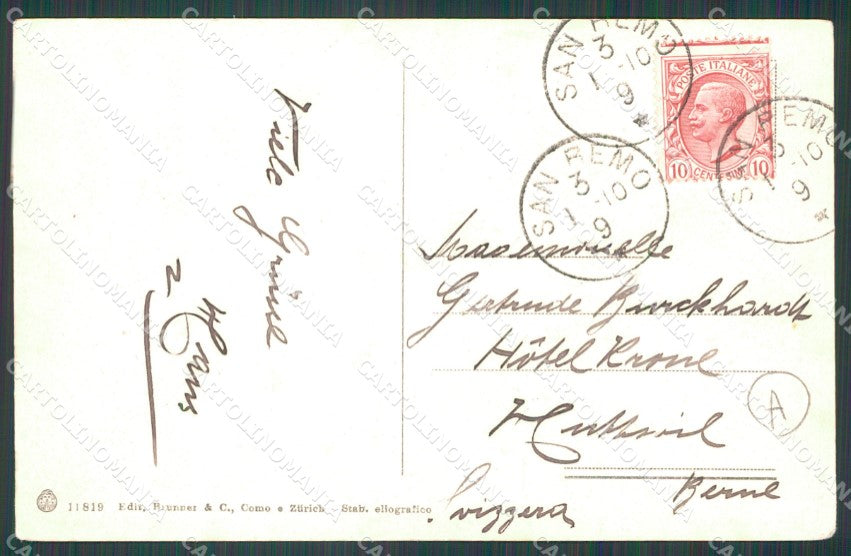 Viele Grüsse
Hans
SAN REMO
3
1 -10
9
SAN REMO
3
1 -10
9
SAN REMO
3
1 -10
9
POSTE ITALIANE
10 CENTESIMI 10
Mademoiselle
Gertrude Burckhardt
Hôtel Krone
Huttwil
Berne
Svizzera
A
11819 Edit. Brunner & C., Como e Zürich - Stab. eliografico
CARTOLINOMANIA